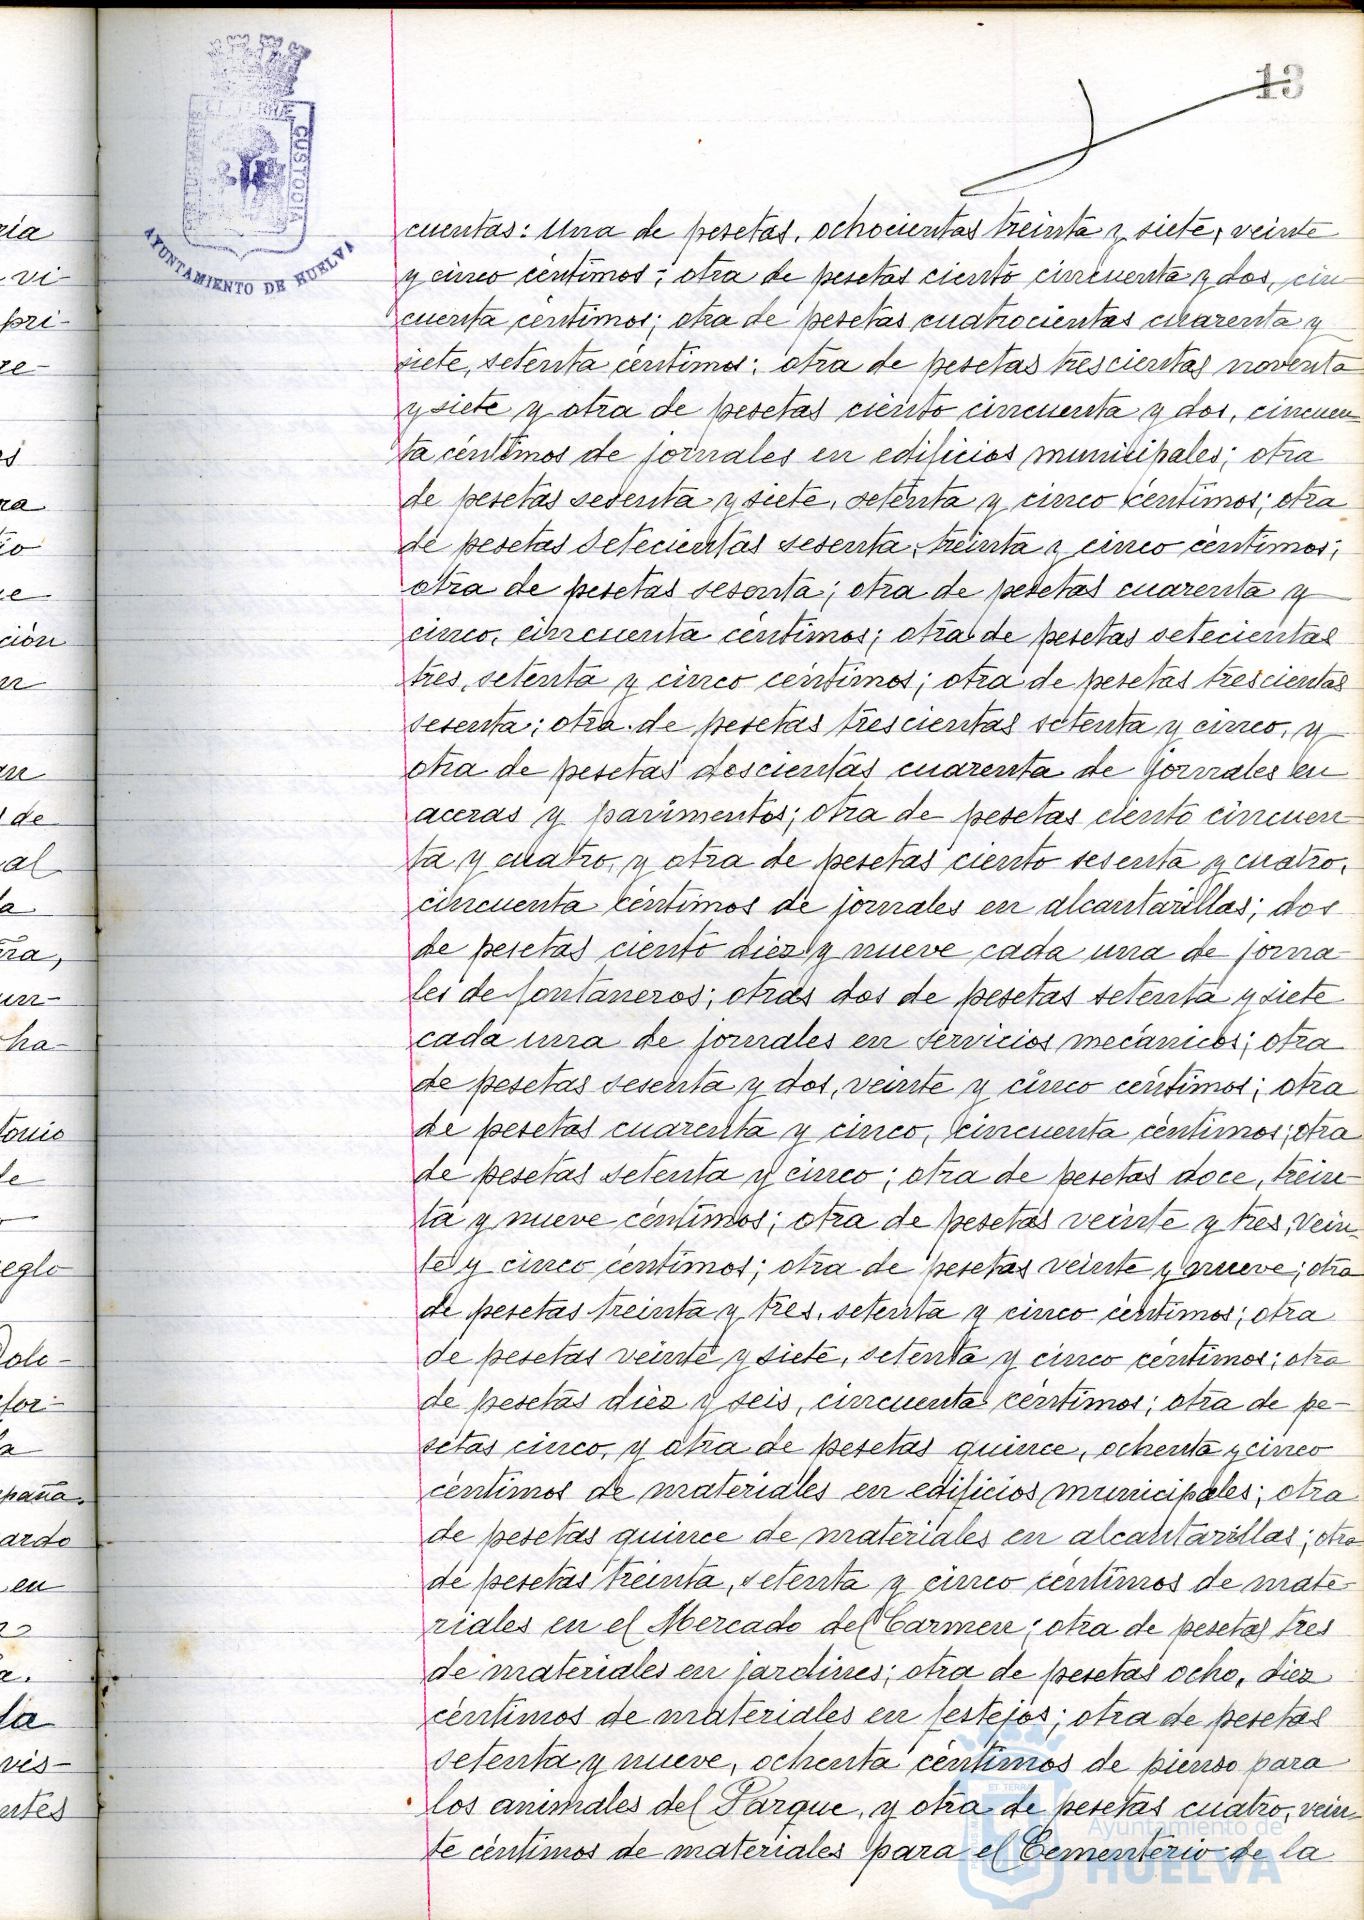 13
PORTUS MARIS
ET TERRÆ
CUSTODIA
AYUNTAMIENTO DE HUELVA
cuentas: una de pesetas, ochocientas treinta y siete, veinte
y cinco céntimos; otra de pesetas ciento cincuenta y dos, cin-
cuenta céntimos; otra de pesetas cuatrocientas cuarenta y
siete, setenta céntimos; otra de pesetas trescientas noventa
y siete y otra de pesetas ciento cincuenta y dos, cincuen-
ta céntimos de jornales en edificios municipales; otra
de pesetas sesenta y siete, setenta y cinco céntimos; otra
de pesetas setecientas sesenta, treinta y cinco céntimos;
otra de pesetas sesenta; otra de pesetas cuarenta y
cinco, cincuenta céntimos; otra de pesetas setecientas
tres, setenta y cinco céntimos; otra de pesetas trescientas
sesenta; otra de pesetas trescientas setenta y cinco, y
otra de pesetas doscientas cuarenta de jornales en
aceras y pavimentos; otra de pesetas ciento cincuen-
ta y cuatro, y otra de pesetas ciento sesenta y cuatro,
cincuenta céntimos de jornales en alcantarillas; dos
de pesetas ciento diez y nueve cada una de jorna-
les de fontaneros; otras dos de pesetas setenta y siete
cada una de jornales en servicios mecánicos; otra
de pesetas sesenta y dos, veinte y cinco céntimos; otra
de pesetas cuarenta y cinco, cincuenta céntimos; otra
de pesetas setenta y cinco; otra de pesetas doce, trein-
ta y nueve céntimos; otra de pesetas veinte y tres, vein-
te y cinco céntimos; otra de pesetas veinte y nueve; otra
de pesetas treinta y tres, setenta y cinco céntimos; otra
de pesetas veinte y siete, setenta y cinco céntimos; otra
de pesetas diez y seis, cincuenta céntimos; otra de pe-
setas cinco, y otra de pesetas quince, ochenta y cinco
céntimos de materiales en edificios municipales; otra
de pesetas quince de materiales en alcantarillas; otra
de pesetas treinta, setenta y cinco céntimos de mate-
riales en el Mercado del Carmen; otra de pesetas tres
de materiales en jardines; otra de pesetas ocho, diez
céntimos de materiales en festejos; otra de pesetas
setenta y nueve, ochenta céntimos de pienso para
los animales del Parque, y otra de pesetas cuatro, vein-
te céntimos de materiales para el Cementerio de la
ría
vi-
pri-
re-
os
ra
ue
ción
de
al
la
un-
ha-
tonio
eglo
Dolo-
for-
la
spaña.
ardo
en
la
ntes
Ayuntamiento de
HUELVA